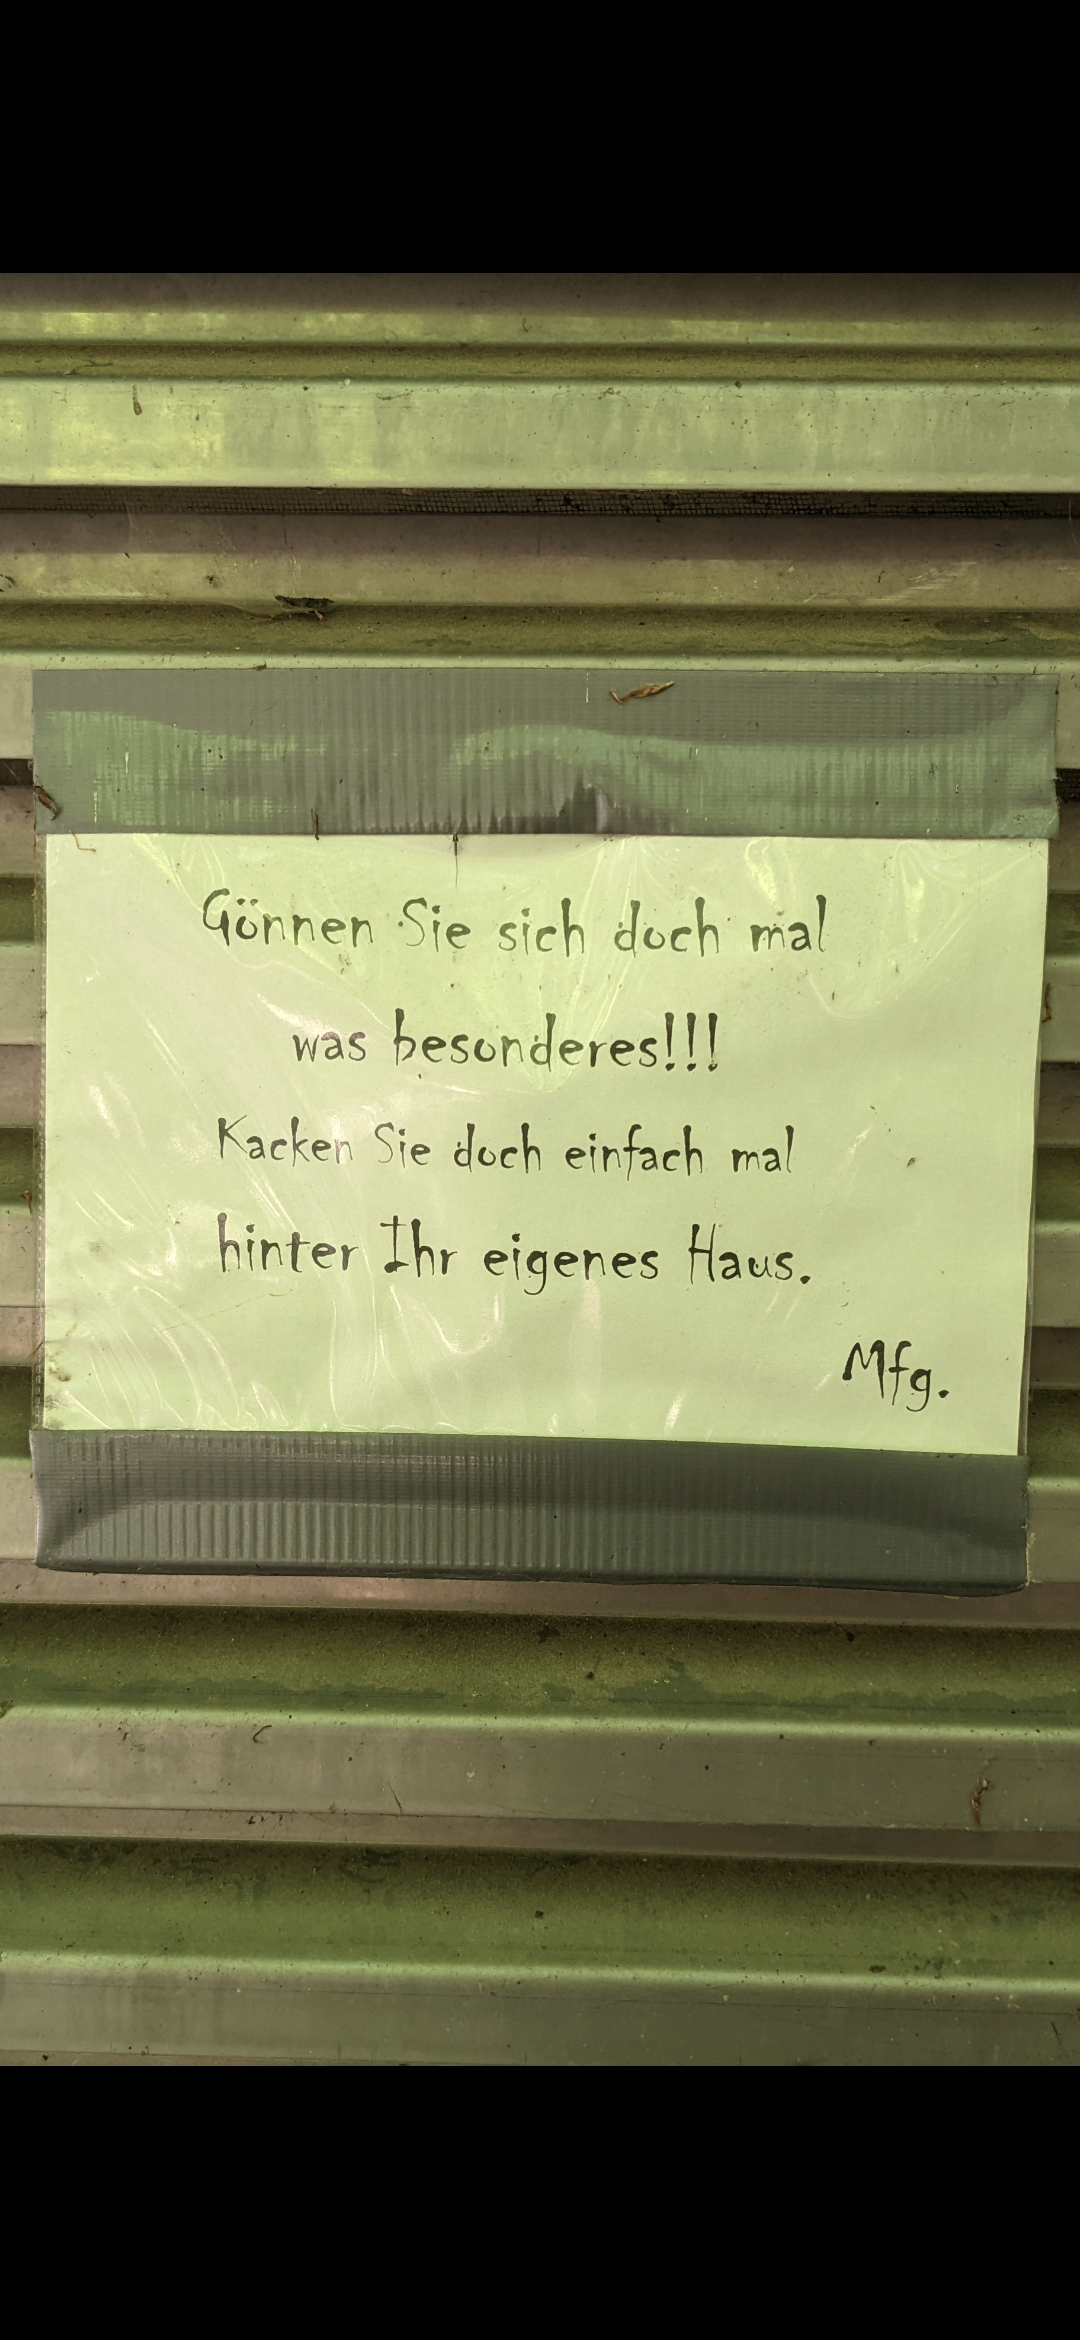 Gönnen Sie sich doch mal
was besonderes!!!
Kacken Sie doch einfach mal
hinter Ihr eigenes Haus.
Mfg.